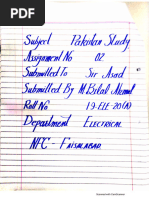 Subject Pakistan Study
Assignment No 02
Submitted to Sir Asad
Submitted By M Bilal Ahmad
Roll No 19-ELE-20(A)
Department Electrical
NFC - Faisalabad